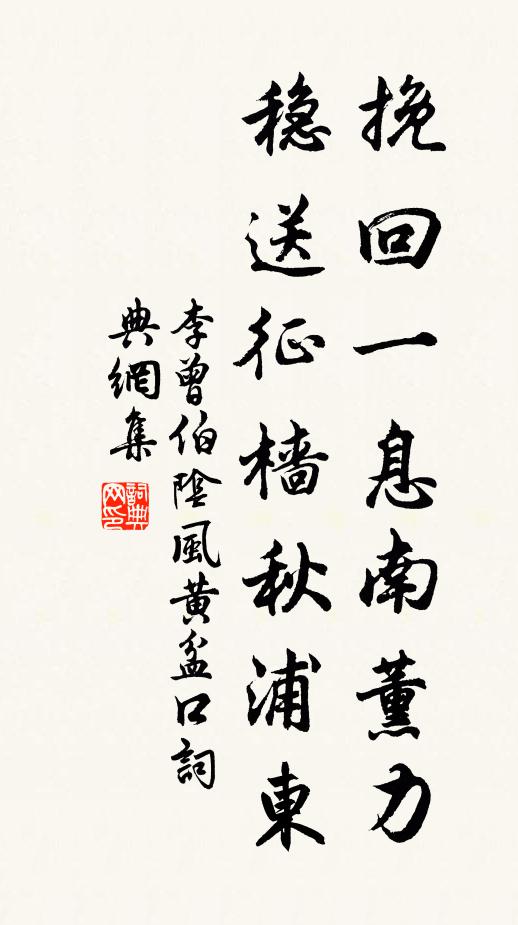 挽回一息南薰力
稳送征樯秋浦東
李曾伯陰風黃盆口詞
典網集
詞典
网印